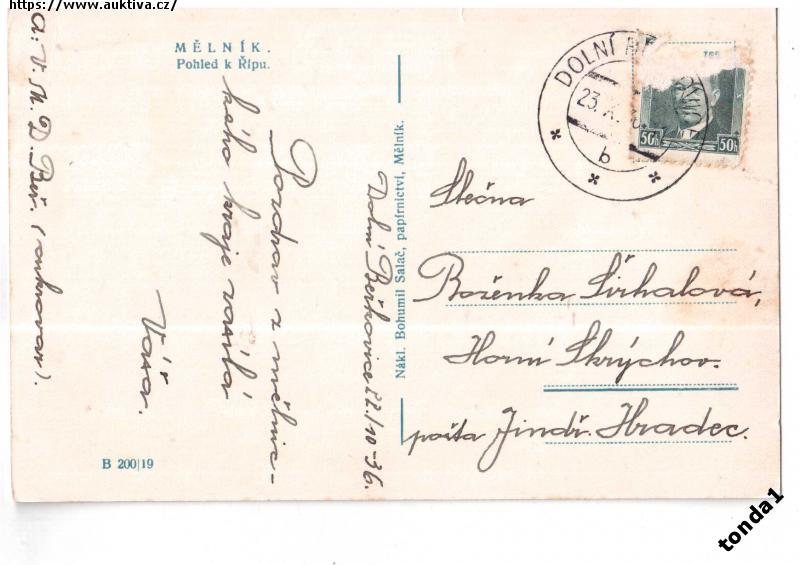 https://www.auktiva.cz/
MĚLNÍK.
Pohled k Řípu.
Pozdrav z mělnic-
kého kraje zasílá
Váša.
a: V. Sk. D. Beř. (cukrovar).
B 200|19
Dolní Beřkovice 22./10-36.
Nákl. Bohumil Salač, papírnictví, Mělník.
DOLNÍ
23. X.
b
50h 50h
Slečna
Boženka
Horní Skrýchov.
pošta Jindř. Hradec.
tonda1